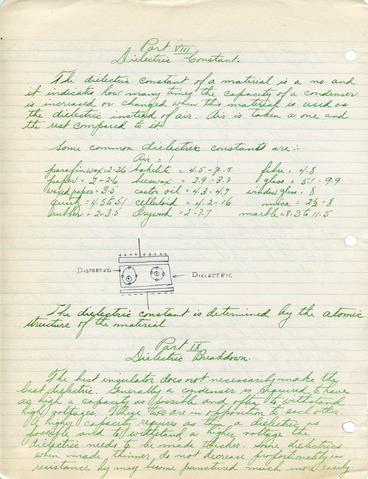 Part VIII
Dielectric Constant.
The dielectric constant of a material is a no. and
it indicates how many times the capacity of a condenser
is increased or changed when this material is used as
the dielectric instead of air. Air is taken a one and
the rest compared to it.
Some common dielectric constants are :-
Air = 1
paraffin wax = 2-2.6 bakelite = 4.5-7.5 fibre = 4-8
paper = 2-2.6 beeswax = 2.9-3.2 glass = 5.1-9.9
waxed paper = 3.5 castor oil = 4.3-4.7 window glass = 8
quartz = 4.5 to 5.1 celluloid = 4.2-16 mica = 2.5-8
rubber = 2-3.5 drywood = 2-7.7 marble = 8.3 to 11.5
DISTORTED DIELECTRIC
The dielectric constant is determined by the atomic
structure of the material
Part IX
Dielectric Breakdown.
The best insulator does not necessarily make the
best dielectric. Generally a condenser is required to have
as high a capacity as possible and often to withstand
high voltages. These two are in opposition to each other.
A higher capacity requires as thin a dielectric as
possible and to withstand a higher voltage the
dielectric needs to be made thicker. Some dielectrics
when made thinner, do not decrease proportionally in
resistance by may become punctured much more easily